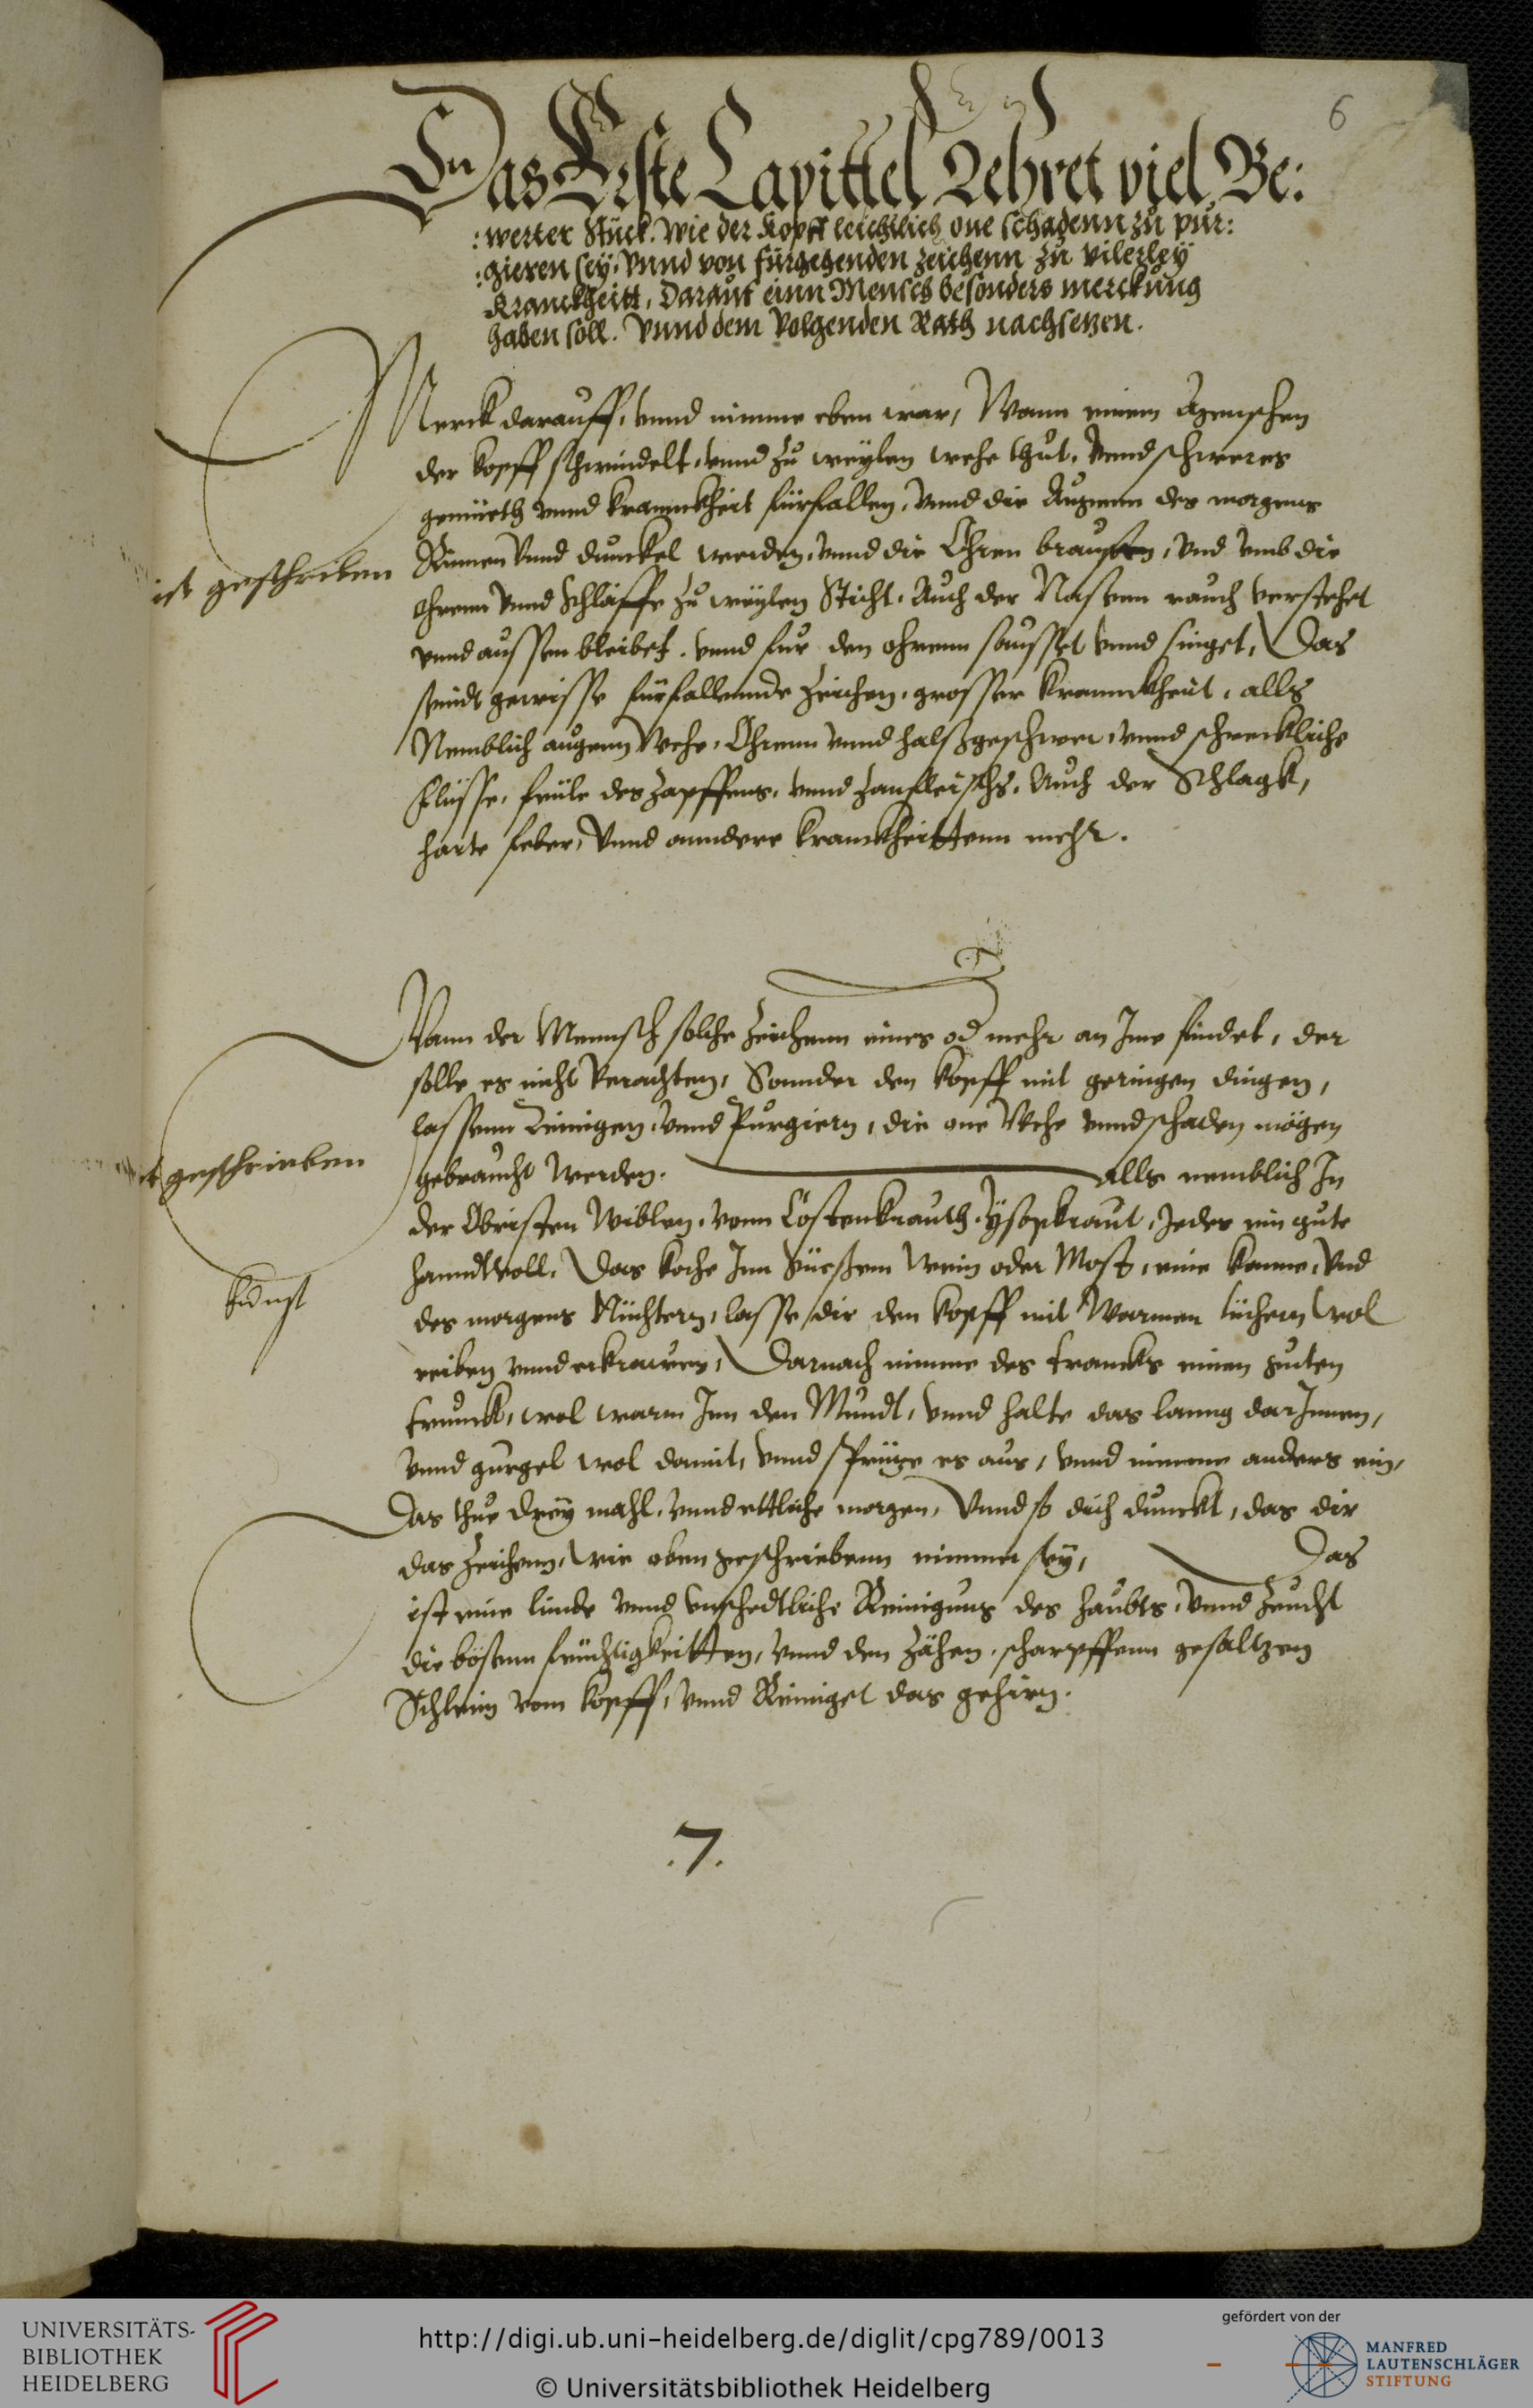 6
Das Erste Capittel Lehret viel Be:
:werter Stück. Wie der Kopff leichtlich one schadenn zu pur:
:gieren sey. Vnnd von fürgehenden zeichenn zu vilerley
Kranckheitt, Darauf einn Mensch besonders merckung
haben soll. Vnnd dem Volgenden Rath nachsetzen.
Merck darauff, vnnd nimme eben war, Wann einem Menschen
der kopff schwindelt, vnnd zu weylen wehe thut, Vnnd schweres
gemüeth vnnd krannckheit fürfallen, Vnnd die Augenn des morgens
Rinnen Vnnd dunckel werden, vnnd die Ohren brausen, vnd vmb die
ist geschrieben
ohrenn vnnd Schläffe zu weylen Sticht. Auch der Nasenn rauch verstehet
vnnd aussen bleibet. vnnd fur den ohrenn sausset vnnd singet, Das
seindt gewisse fürfallennde Zeichen, grosser kranckheit, alls
Nemblich augenn Wehe, Ohrenn vnnd halßgeschwer, vnnd schreckliche
flüsse, feule des Zapffens, vnnd Zanfleischs, Auch der Schlagk,
harte feber, Vnnd anndere kranckheittenn mehr.
Wann der Mennsch solche Zeichenn eines od mehr an Ime findet, der
solle es nicht Verachten, Sonnder den kopff mit geringen dingen,
lassenn Reinigen, vnnd Purgiern, die one Wehe vnnd schaden mögen
geschrieben
gebraucht Werden. alls nemblich In
der Obristen Wiblen, vonn Costenkrauth, Ysopkraut, Jedes ein gute
hanndtvoll, Das koche Inn süessem Wein oder Most, eine kanne, Vnd
kunst
des morgens Nüchtern, lasse dir den kopff mit Warmen tüchern wol
reiben vnnd erkrawen, Darnach nimme des trancks einen guten
trunck, wol warm Inn den Mundt, vnnd halte das lanng darInnen,
vnnd gurgel wol damit, vnnd sprütze es aus, vnnd nimme anders ein,
Das thue drey mahl, vnnd ettliche morgen, Vnnd so dich dunckt, das dir
das Zeichenn, wie oben geschriebenn nimmer sey, Das
ist eine linde vnnd vnschedtliche Reinigung des haubts, vnnd Zeucht
die bösenn feuchtigkeitten, vnnd den Zähen, scharpffenn gesaltzen
Schleim vom kopff, vnnd Reiniget das gehirn.
.7.
UNIVERSITÄTS-
BIBLIOTHEK
HEIDELBERG
http://digi.ub.uni-heidelberg.de/diglit/cpg789/0013
© Universitätsbibliothek Heidelberg
gefördert von der
MANFRED
LAUTENSCHLÄGER
STIFTUNG